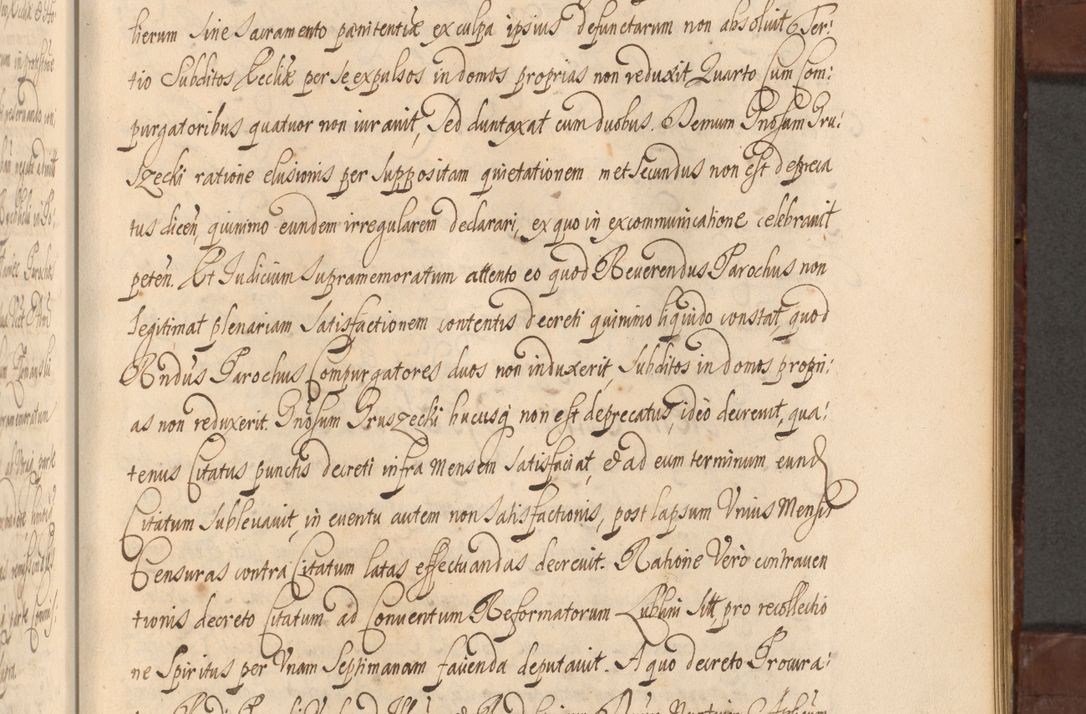 lierum sine Sacramento pænitentiæ ex culpa ipsius defunctarum non absoluit Ter:
tio Subditos Ecclíæ per se expulsos in domos proprias non reduxit Quarto Cum Com:
purgatoribus quatuor non iurauit, Sed duntaxat cum duobus. Demum Gnosum Pru:
szecki ratione elusionis per suppositam quietationem met secundus non est depreca
tus dicen̄, quinimo eundem irregularem declarari, ex quo in excommunicatione celebrauit
peten̄. Et Judicium supramemoratum attento eo quod Reverendus Parochus non
legitimat plenariam satisfactionem contentis decreti quinimo liquido constat, quod
Rndus Parochus Compurgatores duos non induxerit, subditos in domos propri:
as non reduxerit. Gnosum Pruszecki hucusq̄ non est deprecatus, ideo decrevit, qua:
tenus Citatus punctis decreti infra mensem satisfaciat, & ad eum terminum eund
Citatum sublevauit, in eventu autem non satisfactionis, post lapsum Unius Mensis
Censuras contra Citatum latas effectuandas decrevit. Ratione Verò contraven
tionis decreto Citatum ad Conventum Reformatorum Lublini Sitt, pro recollectio
ne Spiritus per Unam Septimanam favenda deputavit. A quo decreto Procura: